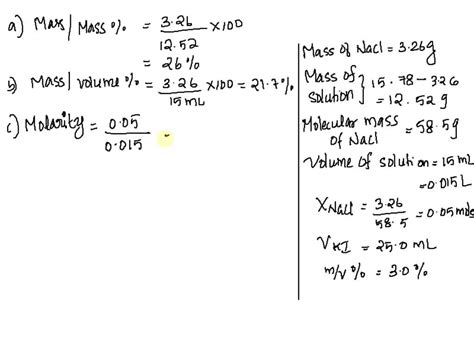 a) Mass/Mass % = 3.26/12.52 × 100
= 26 %
b) Mass/Volume % = 3.26/15 mL × 100 = 21.7 %
c) Molarity = 0.05/0.015 =
Mass of NaCl = 3.26g
Mass of solution } 15.78 - 3.26
= 12.52 g
Molecular mass of NaCl = 58.5g
Volume of solution = 15 mL
= 0.015 L
XNaCl = 3.26/58.5 = 0.05 mols
VKI = 25.0 mL
m/v % = 3.0 %